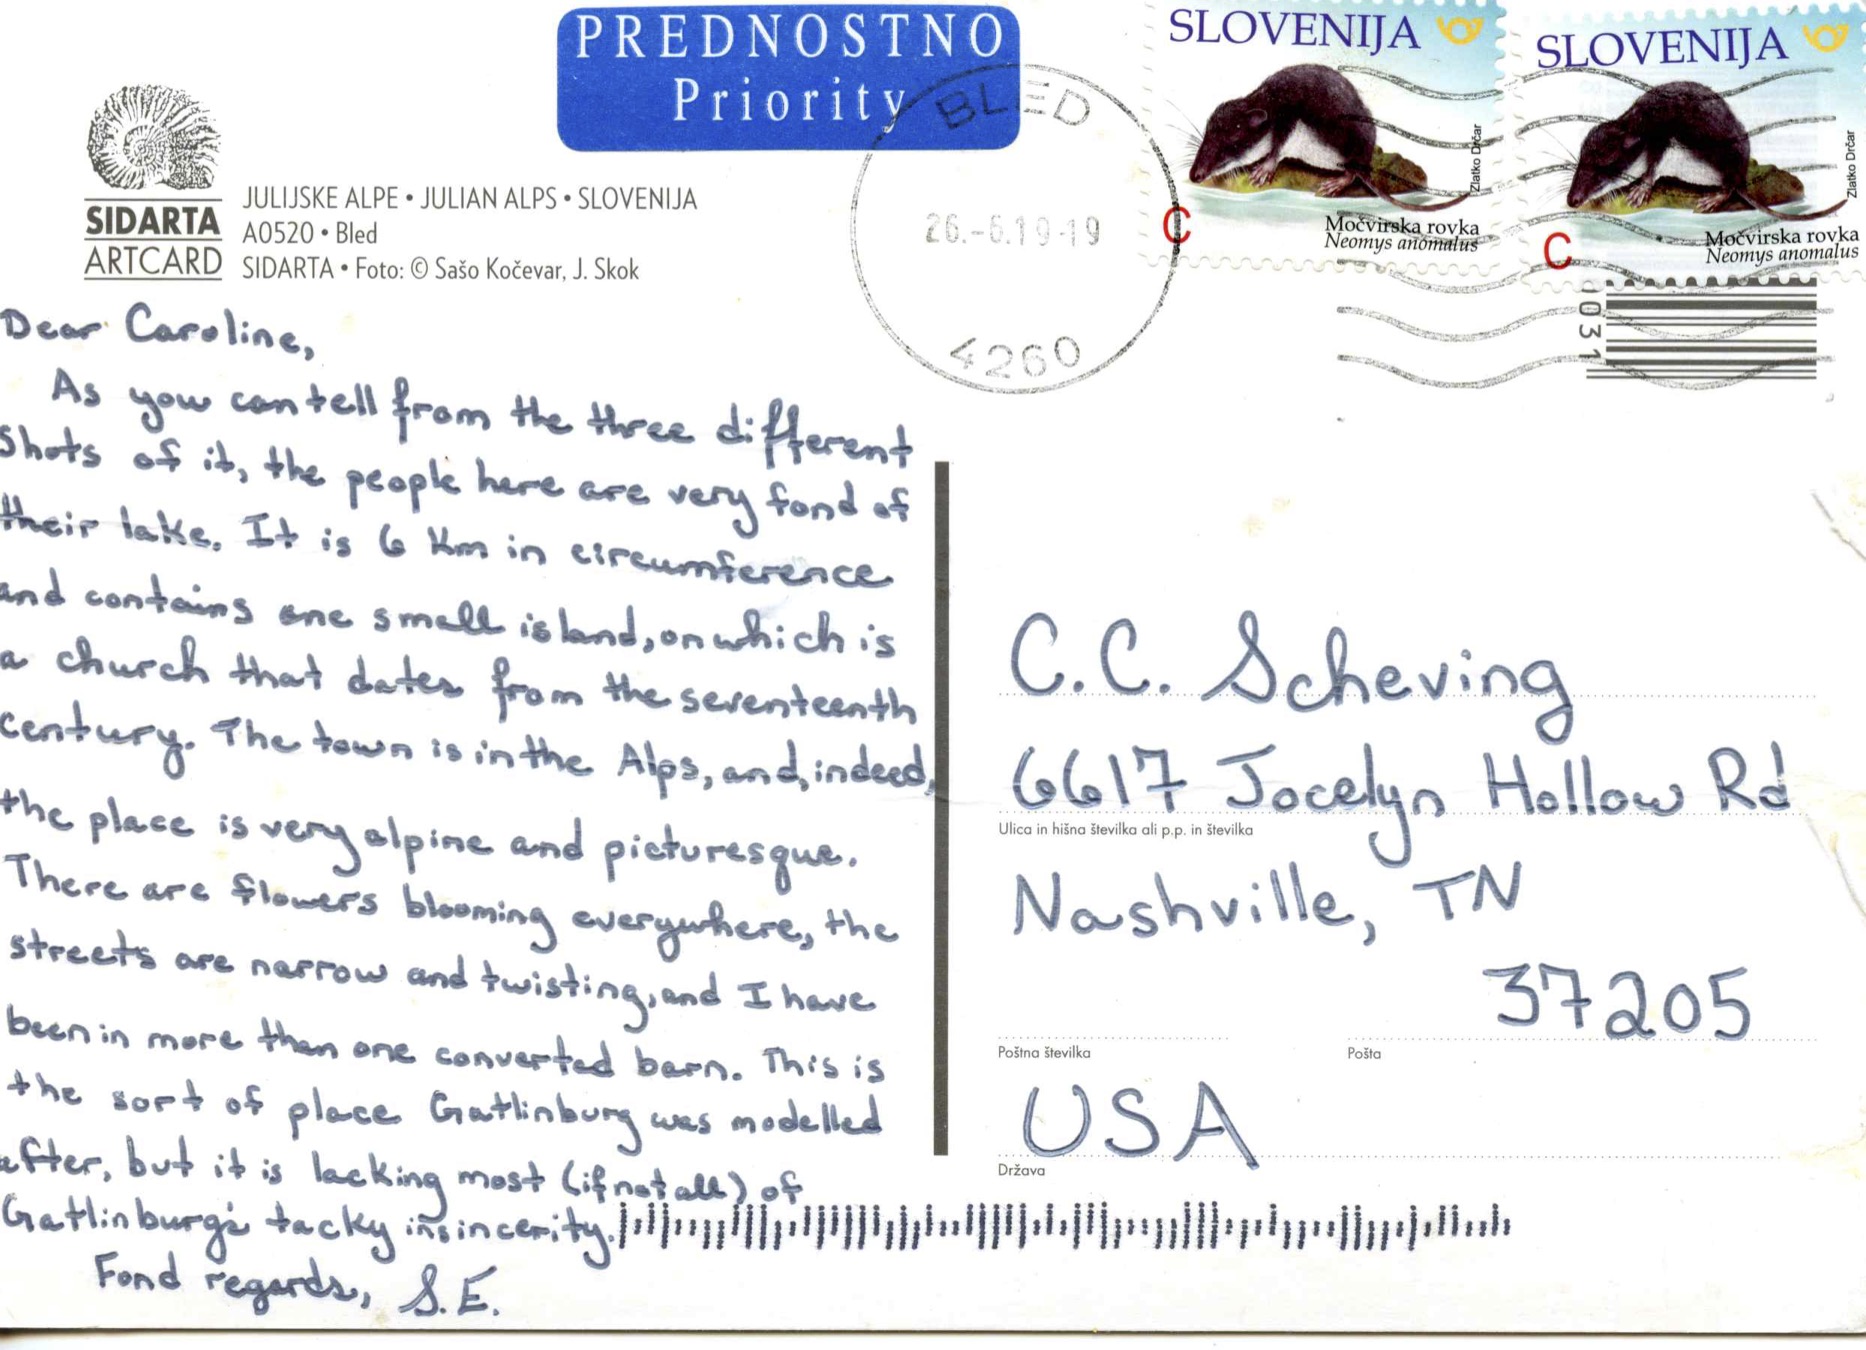 PREDNOSTNO
Priority
BLED
26.-6.19-19
4260
SLOVENIJA
Zlatko Drčar
C
Močvirska rovka
Neomys anomalus
SLOVENIJA
Zlatko Drčar
C
Močvirska rovka
Neomys anomalus
SIDARTA
ARTCARD
JULIJSKE ALPE • JULIAN ALPS • SLOVENIJA
A0520 • Bled
SIDARTA • Foto: © Sašo Kočevar, J. Skok
Dear Caroline,
As you can tell from the three different
shots of it, the people here are very fond of
their lake. It is 6 km in circumference
and contains one small island, on which is
a church that dates from the seventeenth
century. The town is in the Alps, and, indeed,
the place is very alpine and picturesque.
There are flowers blooming everywhere, the
streets are narrow and twisting, and I have
been in more than one converted barn. This is
the sort of place Gatlinburg was modelled
after, but it is lacking most (if not all) of
Gatlinburg's tacky insincerity.
Fond regards, S.E.
C.C. Scheving
6617 Jocelyn Hollow Rd
Ulica in hišna številka ali p.p. in številka
Nashville, TN
37205
Poštna številka
Pošta
USA
Država